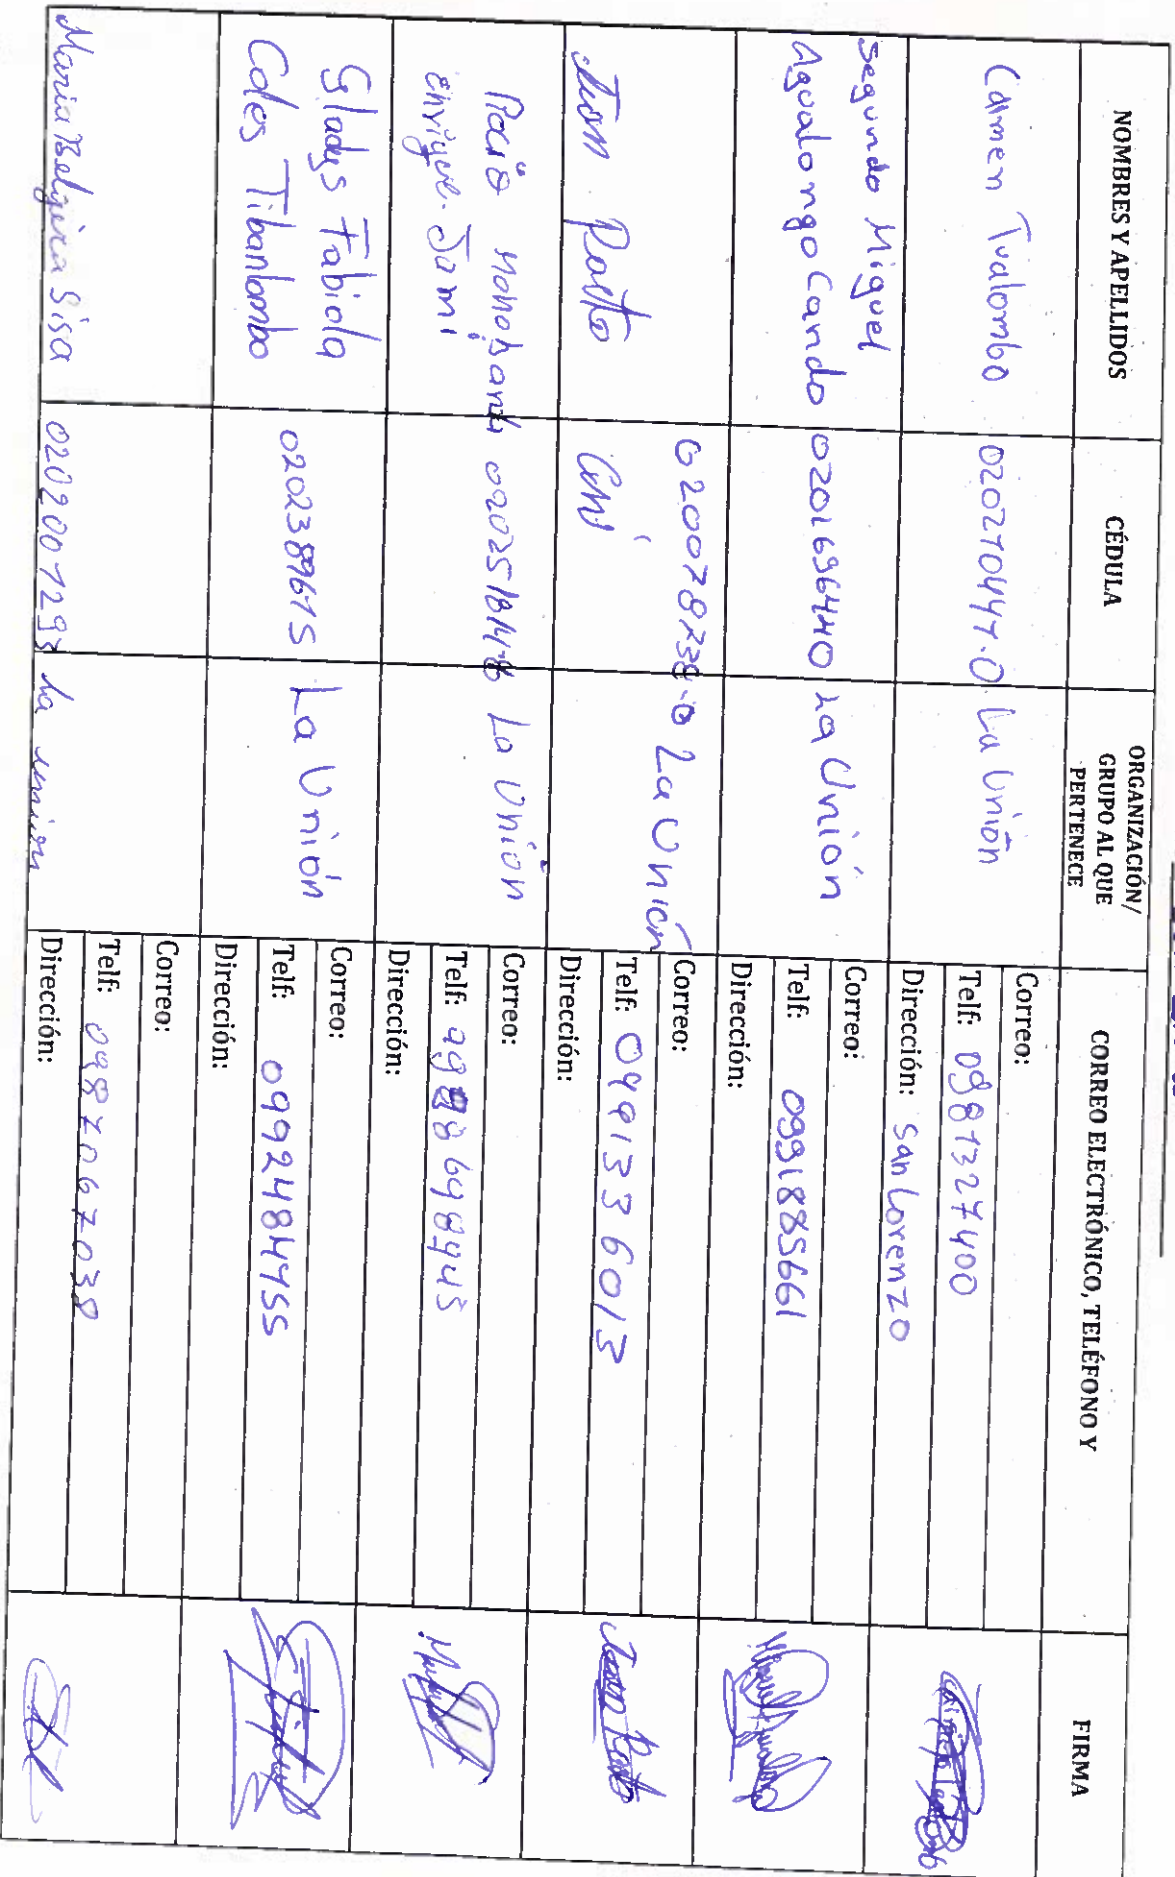 NOMBRES Y APELLIDOS
CÉDULA
ORGANIZACIÓN/
GRUPO AL QUE
PERTENECE
CORREO ELECTRÓNICO, TELÉFONO Y
FIRMA
Carmen Tualombo
La Unión
Correo:
Telf: 0981327400
Dirección: San Lorenzo
Segundo Miguel
Agualongo Cando
0201696440
La Unión
Correo:
Telf: 0991885661
Dirección:
Juan Pasto
La Unión
Correo:
Telf: 0991336013
Dirección:
Rocio
La Unión
Correo:
Telf:
Dirección:
Gladys Fabiola
Coles Tibanlombo
0202389615
La Unión
Correo:
Telf: 0992484455
Dirección:
Maria Belgica Sisa
La union
Correo:
Telf: 0987067038
Dirección: